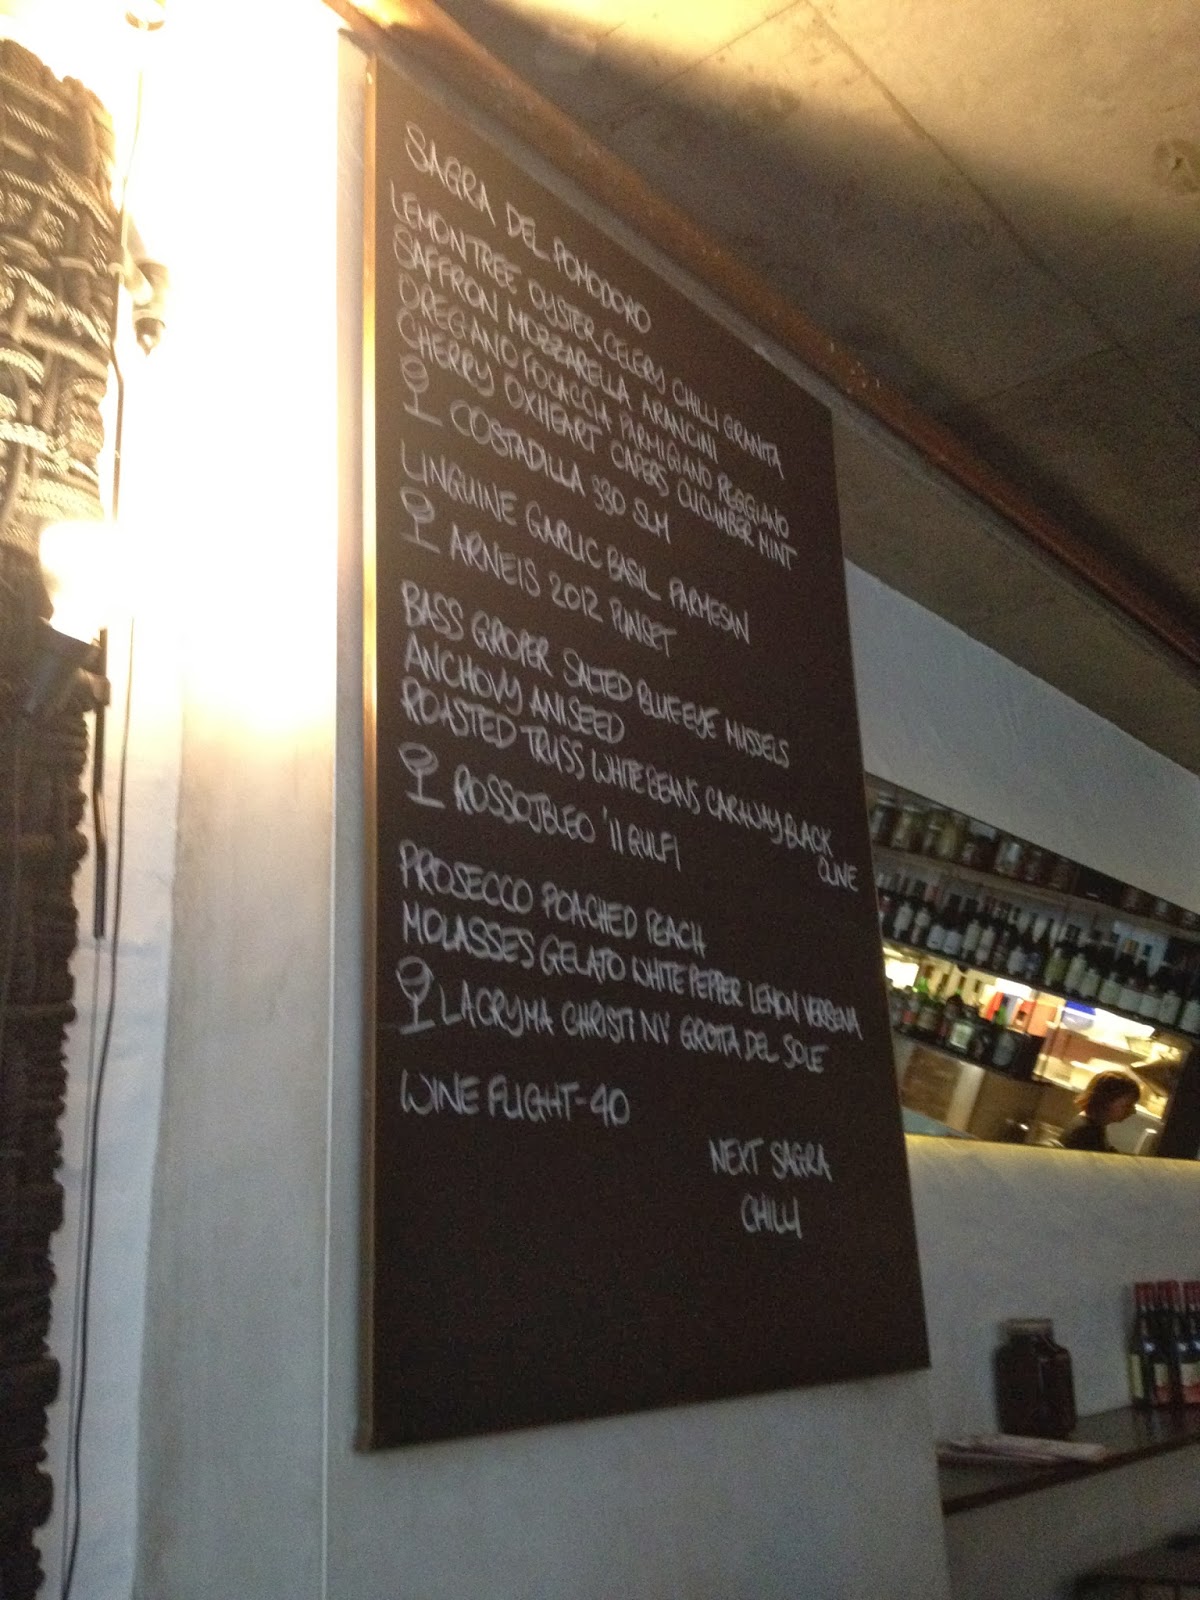 SAGRA DEL POMODORO
LEMONTREE OYSTER CELERY CHILLI GRANITA
SAFFRON MOZZARELLA ARANCINI
OREGANO FOCACCIA PARMIGIANO REGGIANO
CHERRY OXHEART CAPERS CUCUMBER MINT
COSTADILLA 330 SLM
LINGUINE GARLIC BASIL PARMESAN
ARNEIS 2012 PUNSET
BASS GROPER SALTED BLUE EYE MUSSELS
ANCHOVY ANISEED
ROASTED TRUSS WHITE BEANS CARAWAY BLACK
OLIVE
ROSSOJBLEO '11 GULFI
PROSECCO POACHED PEACH
MOLASSES GELATO WHITE PEPPER LEMON VERBENA
LACRYMA CHRISTI NV GROTTA DEL SOLE
WINE FLIGHT-40
NEXT SAGRA
CHILLI